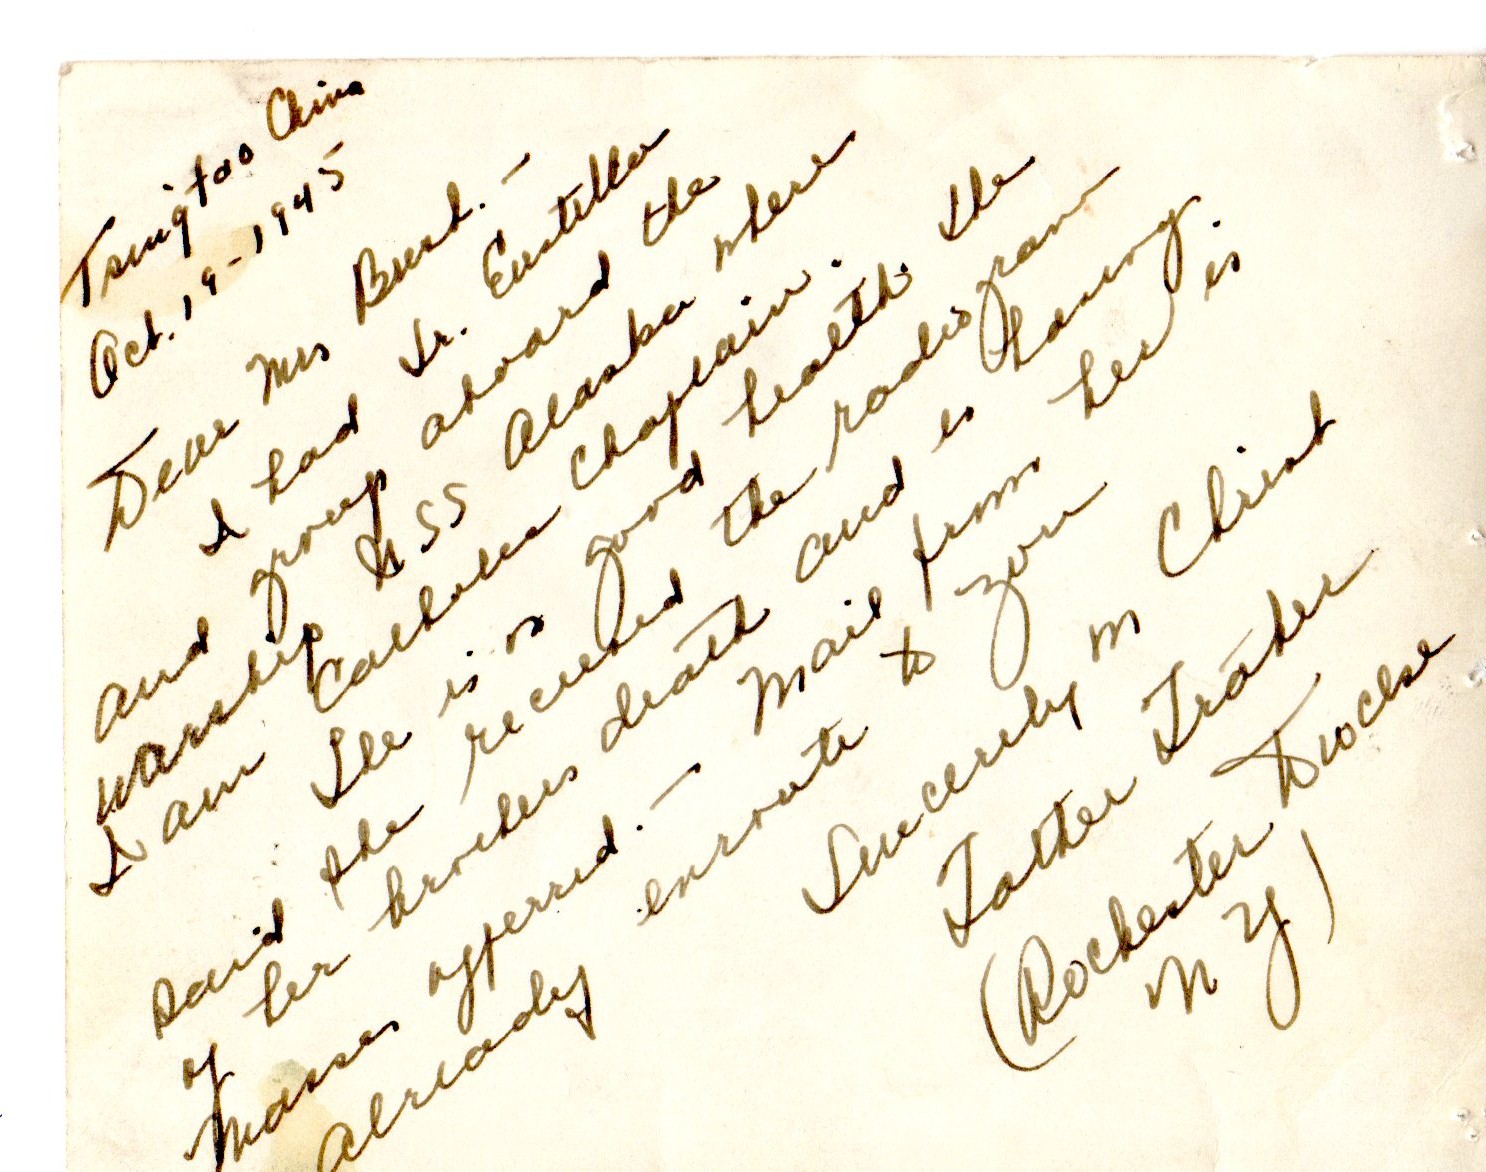 Tsingtao China
Oct. 19-1945
Dear Mrs
I had Sr. Eustella
and group aboard the
warship USS Alaska where
I am Catholic Chaplain.
She is in good health. She
said she received the radiogram
of her brothers death and is having
Masses offerred.- Mail from her is
Already enroute to you
Sincerely in Christ
Father
(Rochester Diocese
N Y)